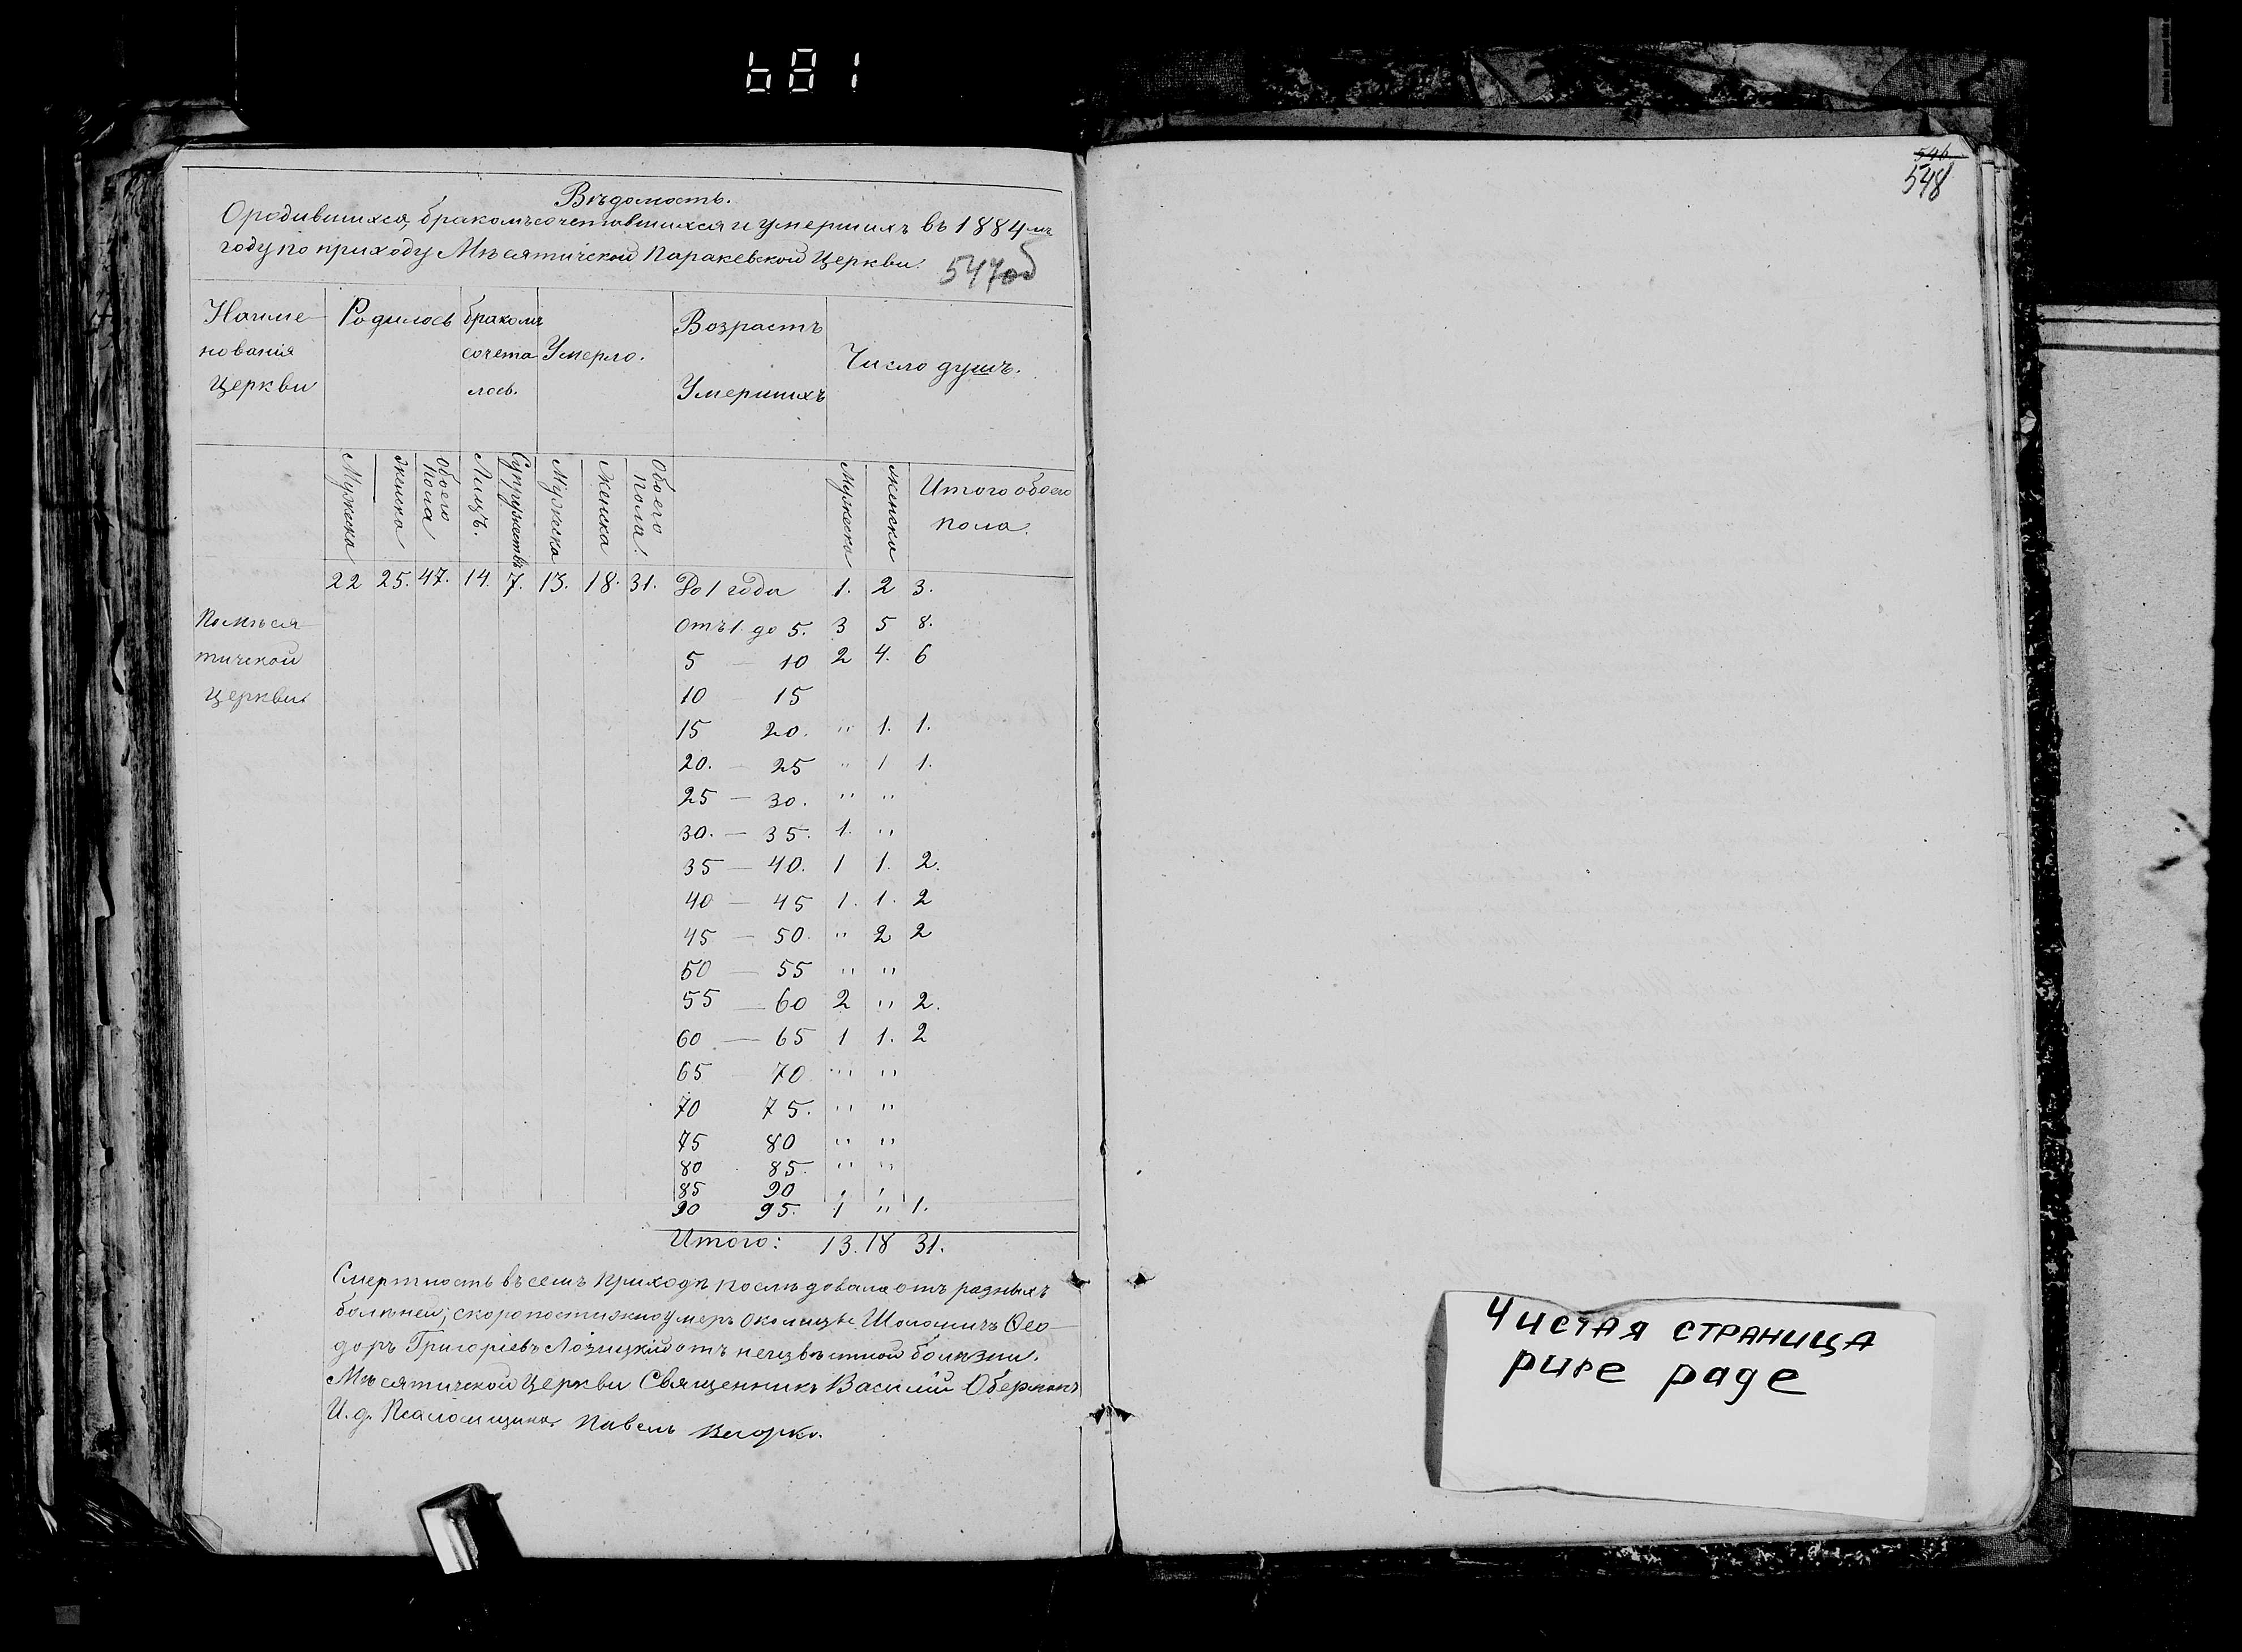 681
Вѣдомость.
О родившихся, бракомъ сочетавшихся и умершихъ въ 1884 мъ
году по приходу Мѣсятической Параскевской Церкви.
547об
Наиме- Родилось бракомъ Умерло. Возрастъ Число душъ.
нованія сочета Умершихъ
Церкви лось.
Мужеска Женска Обоего Пола Лицъ. Супружествъ Мужеска Женска Обоего Пола. Мужеска женска Итого обоего
пола.
22 25. 47. 14. 7. 13. 18. 31. До 1 года 1. 2 3.
По Мѣся- Отъ 1 до 5. 3 5 8.
тической 5 — 10 2 4. 6
Церкви. 10 15
15 20. " 1. 1.
20. — 25 " 1 1.
25 — 30. " "
30. — 35. 1. "
35 — 40. 1 1. 2.
40 — 45 1. 1. 2
45 — 50. " 2 2
50 — 55 " "
55 — 60 2 " 2.
60 — 65 1 1. 2
65 70 " "
70 75. " "
75 80 " "
80 85. " "
85 90 " "
90 95. 1 " 1.
Итого: 13. 18 31.
Смертность въ семъ приходѣ послѣдовала отъ разныхъ
болѣзней; скоропостижно умеръ Шоломичъ Ѳео-
доръ Григоріевъ Лозицкій отъ неизвѣстной болѣзни.
Мѣсятической Церкви Священникъ Василій Оберманъ
И. д. Псаломщика Павелъ
546
548
Чистая страница
pure page